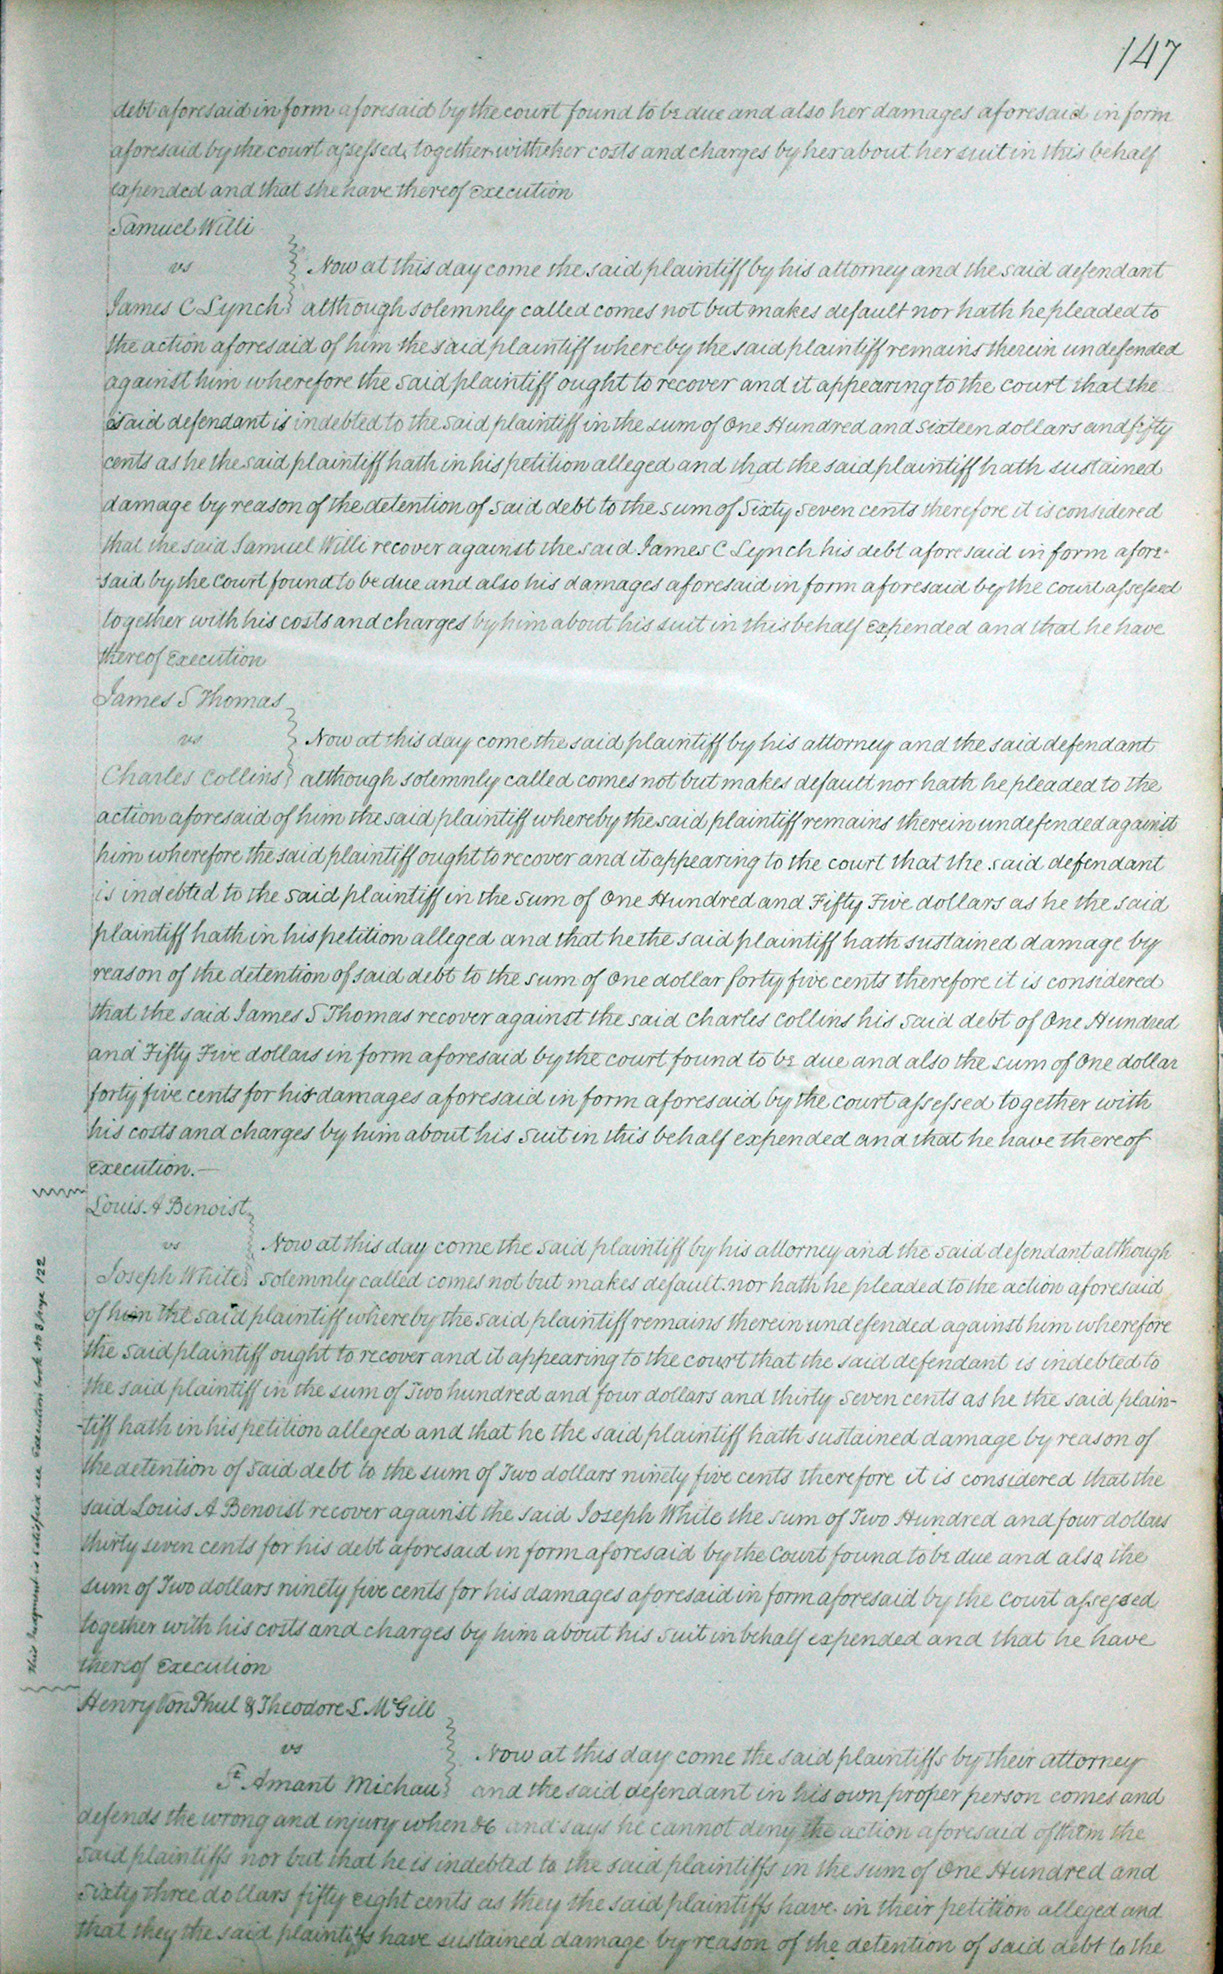 147
debt aforesaid in form aforesaid by the court found to be due and also her damages aforesaid in form
aforesaid by the court assessed, together with her costs and charges by her about her suit in this behalf
expended and that she have thereof execution
Samuel Willi
vs
Now at this day come the said plaintiff by his attorney and the said defendant
James C Lynch although solemnly called comes not but makes default nor hath he pleaded to
the action aforesaid of him the said plaintiff whereby the said plaintiff remains therein undefended
against him wherefore the said plaintiff ought to recover and it appearing to the court that the
said defendant is indebted to the said plaintiff in the sum of One Hundred and sixteen dollars and fifty
cents as he the said plaintiff hath in his petition alleged and that the said plaintiff hath sustained
damage by reason of the detention of said debt to the sum of Sixty seven cents therefore it is considered
that the said Samuel Willi recover against the said James C Lynch his debt aforesaid in form afore-
said by the Court found to be due and also his damages aforesaid in form aforesaid by the court assessed
together with his costs and charges by him about his suit in this behalf expended and that he have
thereof execution
James S Thomas
vs
Now at this day come the said plaintiff by his attorney and the said defendant
Charles Collins although solemnly called comes not but makes default nor hath he pleaded to the
action aforesaid of him the said plaintiff whereby the said plaintiff remains therein undefended against
him wherefore the said plaintiff ought to recover and it appearing to the court that the said defendant
is indebted to the said plaintiff in the sum of One Hundred and Fifty Five dollars as he the said
plaintiff hath in his petition alleged and that he the said plaintiff hath sustained damage by
reason of the detention of said debt to the sum of One dollar forty five cents therefore it is considered
that the said James S Thomas recover against the said Charles Collins his said debt of One Hundred
and Fifty Five dollars in form aforesaid by the court found to be due and also the sum of One dollar
forty five cents for his damages aforesaid in form aforesaid by the court assessed together with
his costs and charges by him about his suit in this behalf expended and that he have thereof
execution.—
Louis A Benoist
vs
Now at this day come the said plaintiff by his attorney and the said defendant although
Joseph White solemnly called comes not but makes default nor hath he pleaded to the action aforesaid
of him the said plaintiff whereby the said plaintiff remains therein undefended against him wherefore
the said plaintiff ought to recover and it appearing to the court that the said defendant is indebted to
the said plaintiff in the sum of Two hundred and four dollars and thirty seven cents as he the said plain-
-tiff hath in his petition alleged and that he the said plaintiff hath sustained damage by reason of
the detention of said debt to the sum of Two dollars ninety five cents therefore it is considered that the
said Louis A Benoist recover against the said Joseph White the sum of Two Hundred and four dollars
thirty seven cents for his debt aforesaid in form aforesaid by the Court found to be due and also the
sum of Two dollars ninety five cents for his damages aforesaid in form aforesaid by the court assessed
together with his costs and charges by him about his suit in behalf expended and that he have
thereof execution
this Judgment is satisfied see Execution book No 3 page 122
Henry Von Phul & Theodore L McGill
vs
Now at this day come the said plaintiffs by their attorney
St Amant Michau and the said defendant in his own proper person comes and
defends the wrong and injury when &c and says he cannot deny the action aforesaid of them the
said plaintiffs nor but that he is indebted to the said plaintiffs in the sum of One Hundred and
Sixty three dollars fifty eight cents as they the said plaintiffs have in their petition alleged and
that they the said plaintiffs have sustained damage by reason of the detention of said debt to the